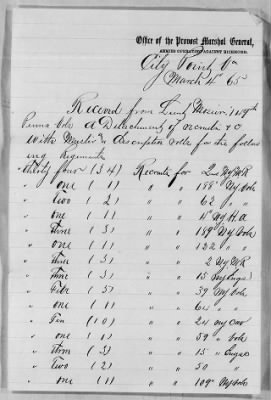 Office of the Provost Marshal General,
ARMIES OPERATING AGAINST RICHMOND,
City Point Va
March 4" 65
Received from Lieut 119th
Penna Vols a Detachment of recruits &c
With Muster & Descriptive Rolls for the follow
ing Regiments
thirty four (34) Recruits for 2
" one (1) " " 188" NY Vols
" two (2) " " 62 " "
" one (1) " " NY H.A
" three (3) " " 189" NY Vols
" one (1) " " 122 " "
" three (3) " " 2 NY M.R
" three (3) " " 15 NY Engrs
" five (5) " " 39 NY Vols
" one (1) " " 64 " "
" Ten (10) " " 24 NY Cav
" one (1) " " 59 " Vols
" three (3) " " 15 " Engrs
" two (2) " " 50 " "
" one (1) " " 109" NY Vols